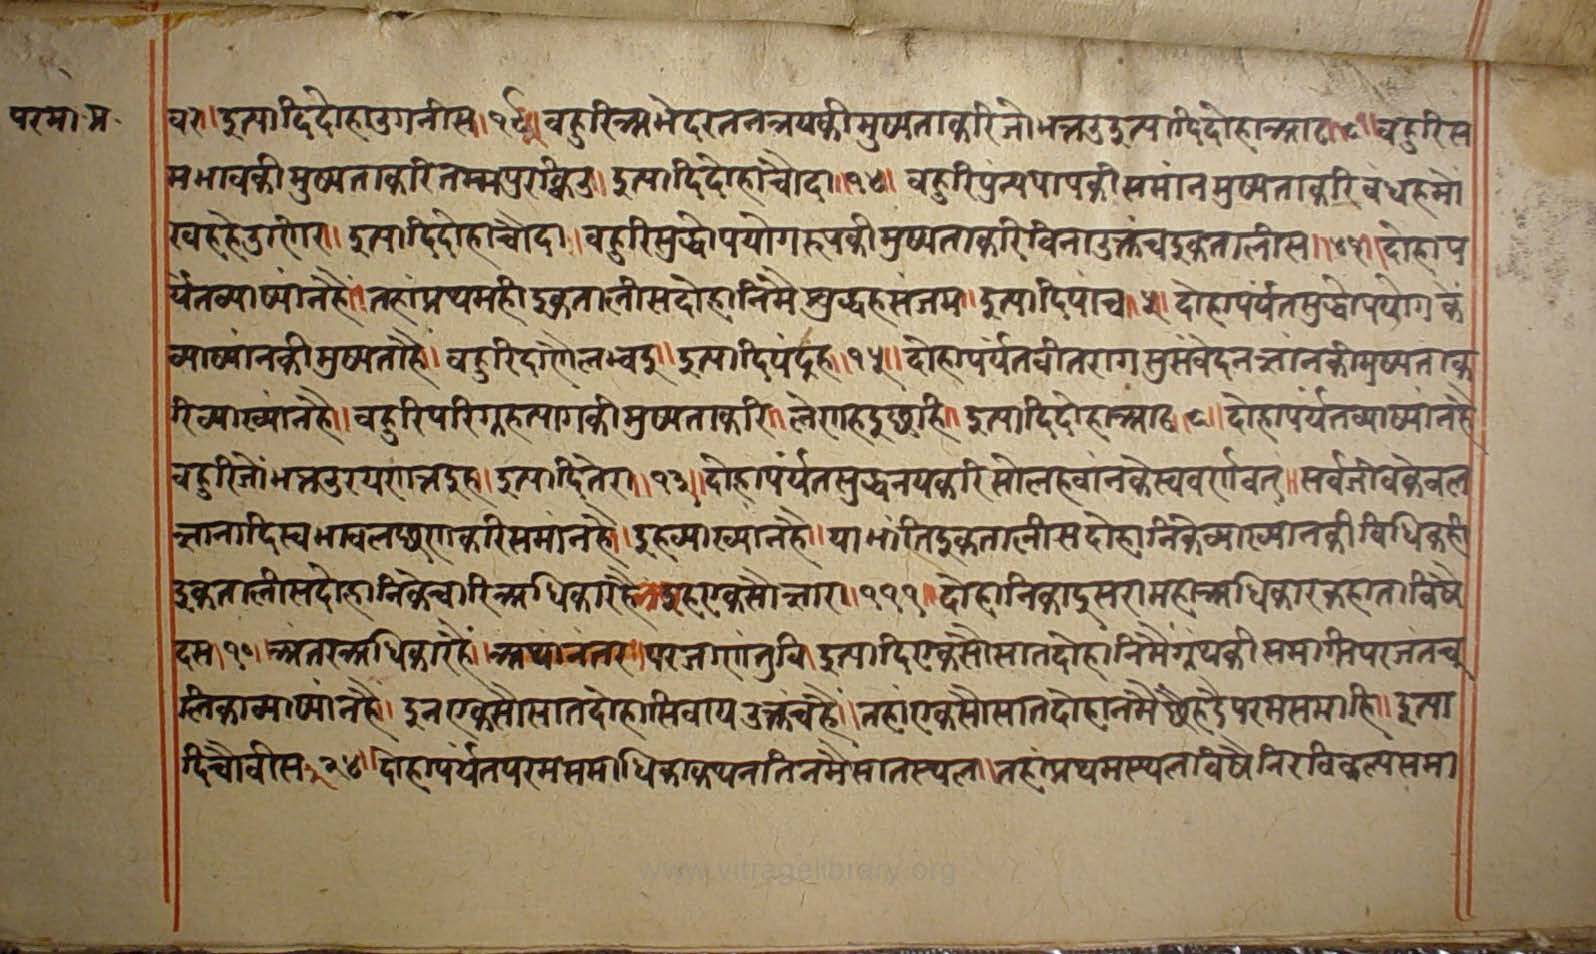 परमा.प्र.
वरु।दुत्यादिदोहाउगनीस।१९।वहुरिअभेदरतनत्रयकीमुष्यताकरिजोभत्तउदुत्यादिदोहाआठ।८।वहुरिस
मभावकीमुष्यताकरितम्मपुरक्किउ।दुत्यादिदोहाचौदा।१४।वहुरिपुंन्यपापकीसमांनमुष्यताकरिवंधहमो
खहहेउणिरु।दुत्यादिदोहाचौदा।वहुरिसुद्धोपयोगरूपकीमुष्यताकरिविनाउक्तंचदुकतालीस।४१।दोहाप
र्यंतव्याष्यांनहै।तहांप्रथमहीदुकतालीसदोहानिमैसुद्धहसंजम।दुत्यादिपांच।५।दोहापर्यंतसुद्धोपयोगके
व्याष्यांनकीमुष्यताहै।वहुरिदाणेलम्बदु।दुत्यादिपंदुह।१५।दोहापर्यंतवीतरागसुसंवेदनज्ञांनकीमुष्यताक
रिव्याख्यांनहै।वहुरिपरिगुहत्यागकीमुष्यताकरि।लेणहदुछहि।दुत्यादिदोहाआठ।८।दोहापर्यंतव्याष्यांनहै
वहुरिजोभत्तउरयणत्तदुह।दुत्यादितेरा।१३।दोहापर्यंतसुद्धनयकरिसोलहवांनकेस्ववर्णवत्॥सर्वजीवकेवल
ज्ञानादिस्वभावलछणकरिसमांनहै।दुहव्याख्यांनहै।याभांतिदुकतालीसदोहानिकेव्याख्यांनकीविधिकही
दुकतालीसदोहानिकेच्यारिअधिकारहै।दुहाएकसौग्यारा।१११।दोहानिकादुसरामहाअधिकारकहाताविषै
दस।१०।अंतरअधिकारहै।अथानंतर।परजाणंतुवि।दुत्यादिएकसौसातदोहांनिमैगुंथकीसमाप्तिपरजंतचू
लिकाव्याष्यांनहै।दुनएकसौसातदोहासिवायउक्तंचहै।तहांएकसौसातदोहांनमैछेहदैपरमसमाहि।दुत्या
दिचौवीस।२४।दोहापर्यंतपरमसमाधिकाकथनतिनमैसातस्थल।तहांप्रथमस्थलविषैनिरविकल्पसमा